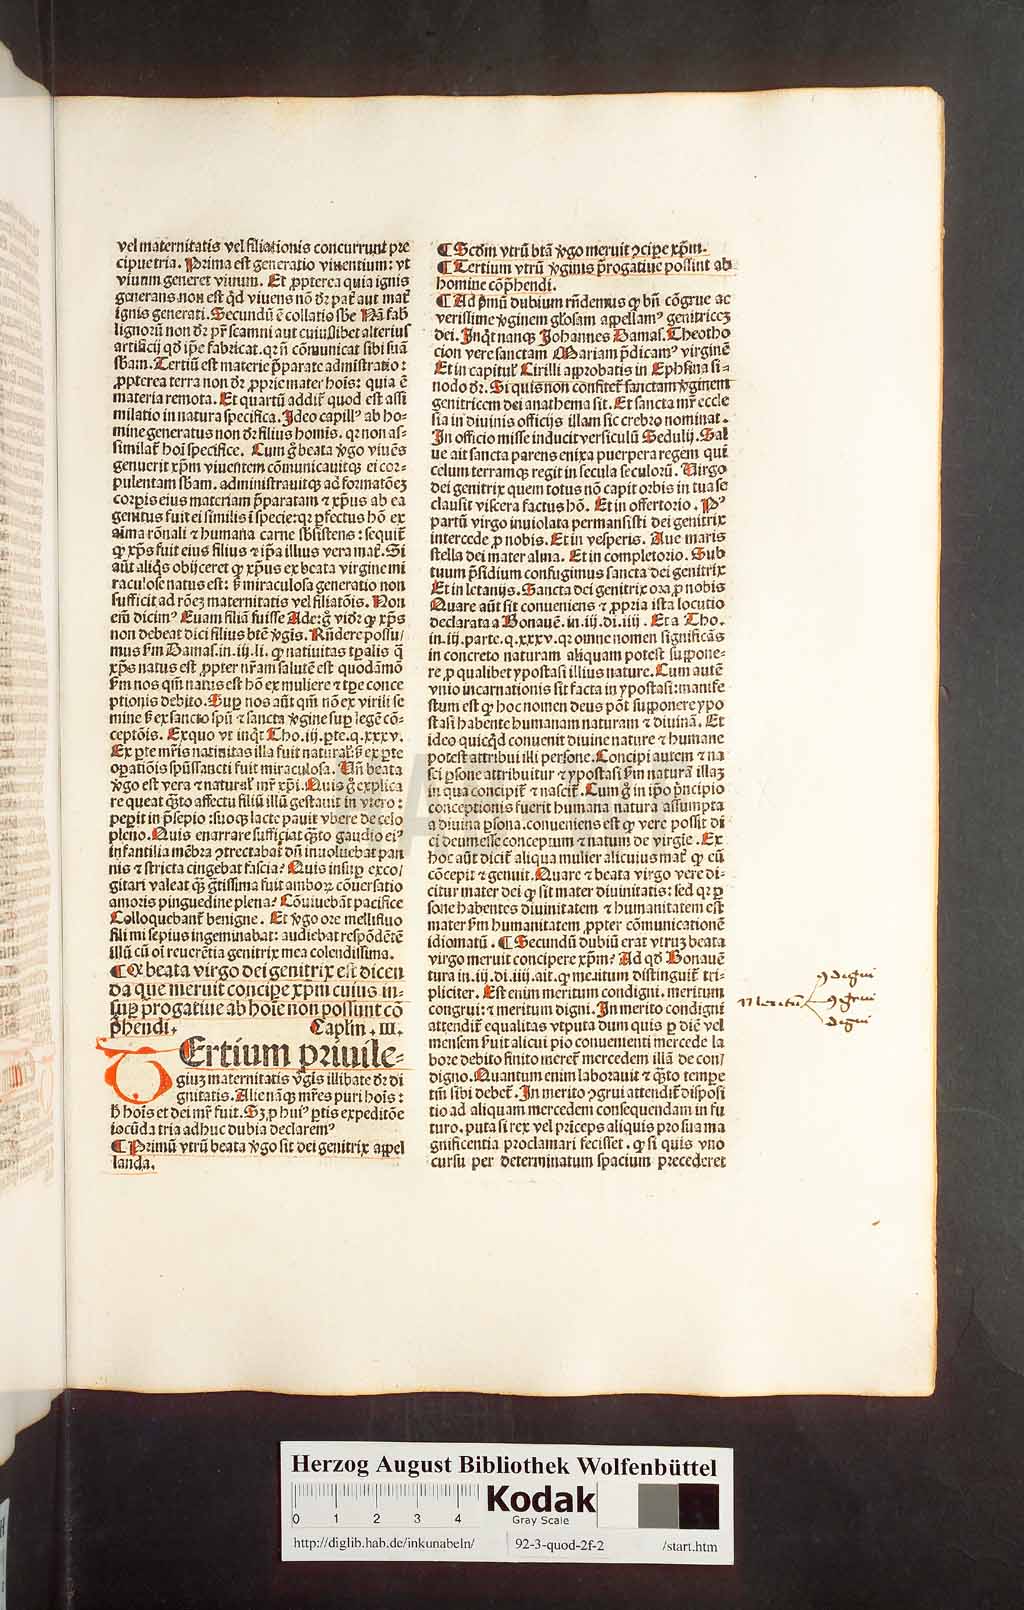 vel maternitatis vel filiationis concurrunt pre
cipue tria. Prima est generatio viuentium: vt
viuum generet viuum. Et ꝓpterea quia ignis
generans non est qd̓ viuens nō dr̄ pat̓ aut mat̓
ignis generati. Secundū ē collatio sb̄e Nā fab
lignorū non dr̄ pr̄ scamni aut cuiuslibet alterius
artificij qd̓ ip̄e fabricat. qr̄ nō cōmunicat sibi suā
sb̄am. Tertiū est materie p̄parate administratio:
ꝓpterea terra non dr̄ ꝓprie mater hoīs: quia ē
materia remota. Et quartū addit̓ quod est assi
milatio in natura specifica. Ideo capillꝰ ab ho-
mine generatus non dr̄ filius homis. qr̄ non as-
similat̓ hoī specifice. Cum g̊ beata v̓go viuēs
genuerit xp̄m viuentem cōmunicauitqꝫ ei cor-
pulentam sb̄am. administrauitqꝫ ad formatōeꝫ
corꝑis eius materiam p̄paratam ⁊ xp̄us ab ea
genitus fuit ei similis ī specie: qr̄ ꝑfectus hō ex
aīma rōnali ⁊ humana carne sb̄sistens: sequit̓
ꝙ xp̄s fuit eius filius ⁊ ip̄a illius vera mat̓. Si
aūt aliq̓s obijceret ꝙ xp̄us ex beata virgine mi
raculose natus est: s̓ miraculosa generatio non
sufficit ad rōeꝫ maternitatis vel filiatōis. Non
em̄ dicimꝰ Euam filiā fuisse Ade: g̊ vid̓r ꝙ xp̄s
non debeat dici filius btē v̓gīs. Rn̄dere possu/
mus s̓m Damas. in. iij. li. ꝙ natiuitas tp̄alis q̄
xp̄s natus est ꝓpter nr̄am salutē est quodāmō
s̓m nos qm̄ natus est hō ex muliere ⁊ tp̄e conce
ptionis debito. Suꝑ nos aūt qm̄ nō ex virili se
mine s̓ ex sancto spū ⁊ sancta v̓gine suꝑ legē cō-
ceptōis. Exquo vt inq̓t Tho. iij. ꝑte. q. xxxv.
Ex ꝑte mr̄is natiuitas illa fuit natural̓. s̓ ex ꝑte
oꝑatiōis spūssancti fuit miraculosa. Vn̄ beata
v̓go est vera ⁊ natural̓ mr̄ xp̄i. Quis g̊ explica
re queat q̄to affectu filiū illū gestauit in vtero:
peꝑit in p̄sepio: suoqꝫ lacte pauit vbere de celo
pleno. Quis enarrare sufficiat q̄to gaudio eiꝰ
infantilia mēbra ꝯtrectabat̓ dū inuoluebat pan
nis ⁊ stricta cingebat fascia? Quis insuꝑ exco/
gitari valeat q̄ g̓tissima fuit amboꝝ cōuersatio
amoris pinguedine plena? Cōuiuebāt pacifice
Colloquebant̓ benigne. Et v̓go ore mellifluo
fili mi sepius ingeminabat: audiebat respōdētē
illū cū oī reuerētia genitrix mea colendissima.
¶ Qꝫ beata virgo dei genitrix est dicen
da que meruit concipe xp̄m cuius in-
suꝑ p̄rogatiue ab hoīe non possunt cō
p̄hendi. Capl̓m . III.
TErtium priuile-
giuꝫ maternitatis v̓gīs illibate dr̄ di
gnitatis. Alienāqꝫ mr̄es puri hoīs:
h̓ hoīs et dei mr̄ fuit. Sꝫ ꝓ huiꝰ ꝑtis expeditōe
iocūda tria adhuc dubia declaremꝰ
¶ Primū vtrū beata v̓go sit dei genitrix appel
landa.
¶ Scd̓m vtrū btā v̓go meruit ꝯciꝑe xp̄m.
¶ Tertium vtrū v̓ginis p̄rogatiue possint ab
homine cōp̄hendi.
¶ Ad p̄mū dubium rn̄demus ꝙ bn̄ cōgrue ac
verissime v̓ginem gl̓osam appellamꝰ genitriceꝫ
dei. Inq̓t nanqꝫ Johannes Damas. Theotho
cion vere sanctam Mariam p̄dicamꝰ virginē
Et in capitul̓ Cirilli approbatis in Ephsina si-
nodo dr̄. Si quis non confitet̓ sanctam v̓ginem
genitricem dei anathema sit. Et sancta mr̄ eccle
sia in diuinis officijs illam sic crebro nominat.
In officio misse inducit versiculū Sedulij. Sal
ue ait sancta parens enixa puerpera regem qui
celum terramqꝫ regit in secula seculorū. Virgo
dei genitrix quem totus nō capit orbis in tua se
clausit viscera factus hō. Et in offertorio. Pꝰ
partū virgo inuiolata permansisti dei genitrix
intercede ꝓ nobis. Et in vesperis. Aue maris
stella dei mater alma. Et in completorio. Sub
tuum p̄sidium confugimus sancta dei genitrix
Et in letanijs. Sancta dei genitrix ora ꝓ nobis
Quare aūt sit conueniens ⁊ ꝓpria ista locutio
declarata a Bonauē. in. iij. di. iiij. Et a Tho.
in. iij. parte. q. xxxv. qr̄ omne nomen significās
in concreto naturam aliquam potest suppone-
re ꝓ qualibet ypostasi illius nature. Cum autē
vnio incarnationis sit facta in ypostasi: manife
stum est ꝙ hoc nomen deus pōt supponere ypo
stasi habente humanam naturam ⁊ diuinā. Et
ideo quicq̓d conuenit diuine nature ⁊ humane
potest attribui illi persone. Concipi autem ⁊ na
sci ꝑsone attribuitur ⁊ ypostasi s̓m naturā illaꝫ
in qua concipit̓ ⁊ nascit̓. Cum g̊ in ip̄o p̓ncipio
conceptionis fuerit humana natura assumpta
a diuina ꝑsona. conueniens est ꝙ vere possit di
ci deumesse conceptum ⁊ natum de virgīe. Ex
hoc aūt dicit̓ aliqua mulier alicuius mat̓ ꝙ eū
cōcepit ⁊ genuit. Quare ⁊ beata virgo vere di-
citur mater dei ꝙ sit mater diuinitatis: sed qr̄ ꝑ
sone habentes diuinitatem ⁊ humanitatem est
mater s̓m humanitatem ꝓpter cōmunicationē
idiomatū. ¶ Secundū dubiū erat vtruꝫ beata
virgo meruit concipere xp̄m? Ad qd̓ Bonauē
tura in. iij. di. iiij. ait. ꝙ meritum distinguit̓ tri-
pliciter. Est enim meritum condigni. meritum
congrui: ⁊ meritum digni. In merito condigni
attendit̓ equalitas vtputa dum quis ꝑ diē vel
mensem s̓uit alicui pio conuenienti mercede la
bore debito finito meret̓ mercedem illā de con/
digno. Quantum enim laborauit ⁊ q̄to tempe
tm̄ sibi debet̓. In merito ꝯgrui attendit̓ disposi
tio ad aliquam mercedem consequendam in fu
turo. puta si rex vel p̓nceps aliquis pro sua ma
gnificentia proclamari fecisset. ꝙ si quis vno
cursu per determinatum spacium precederet
Meritū
ꝯdigni
ꝯgrui
digni
Herzog August Bibliothek Wolfenbüttel
0 1 2 3 4
Kodak
Gray Scale
http://diglib.hab.de/inkunabeln/ 92-3-quod-2f-2 /start.htm